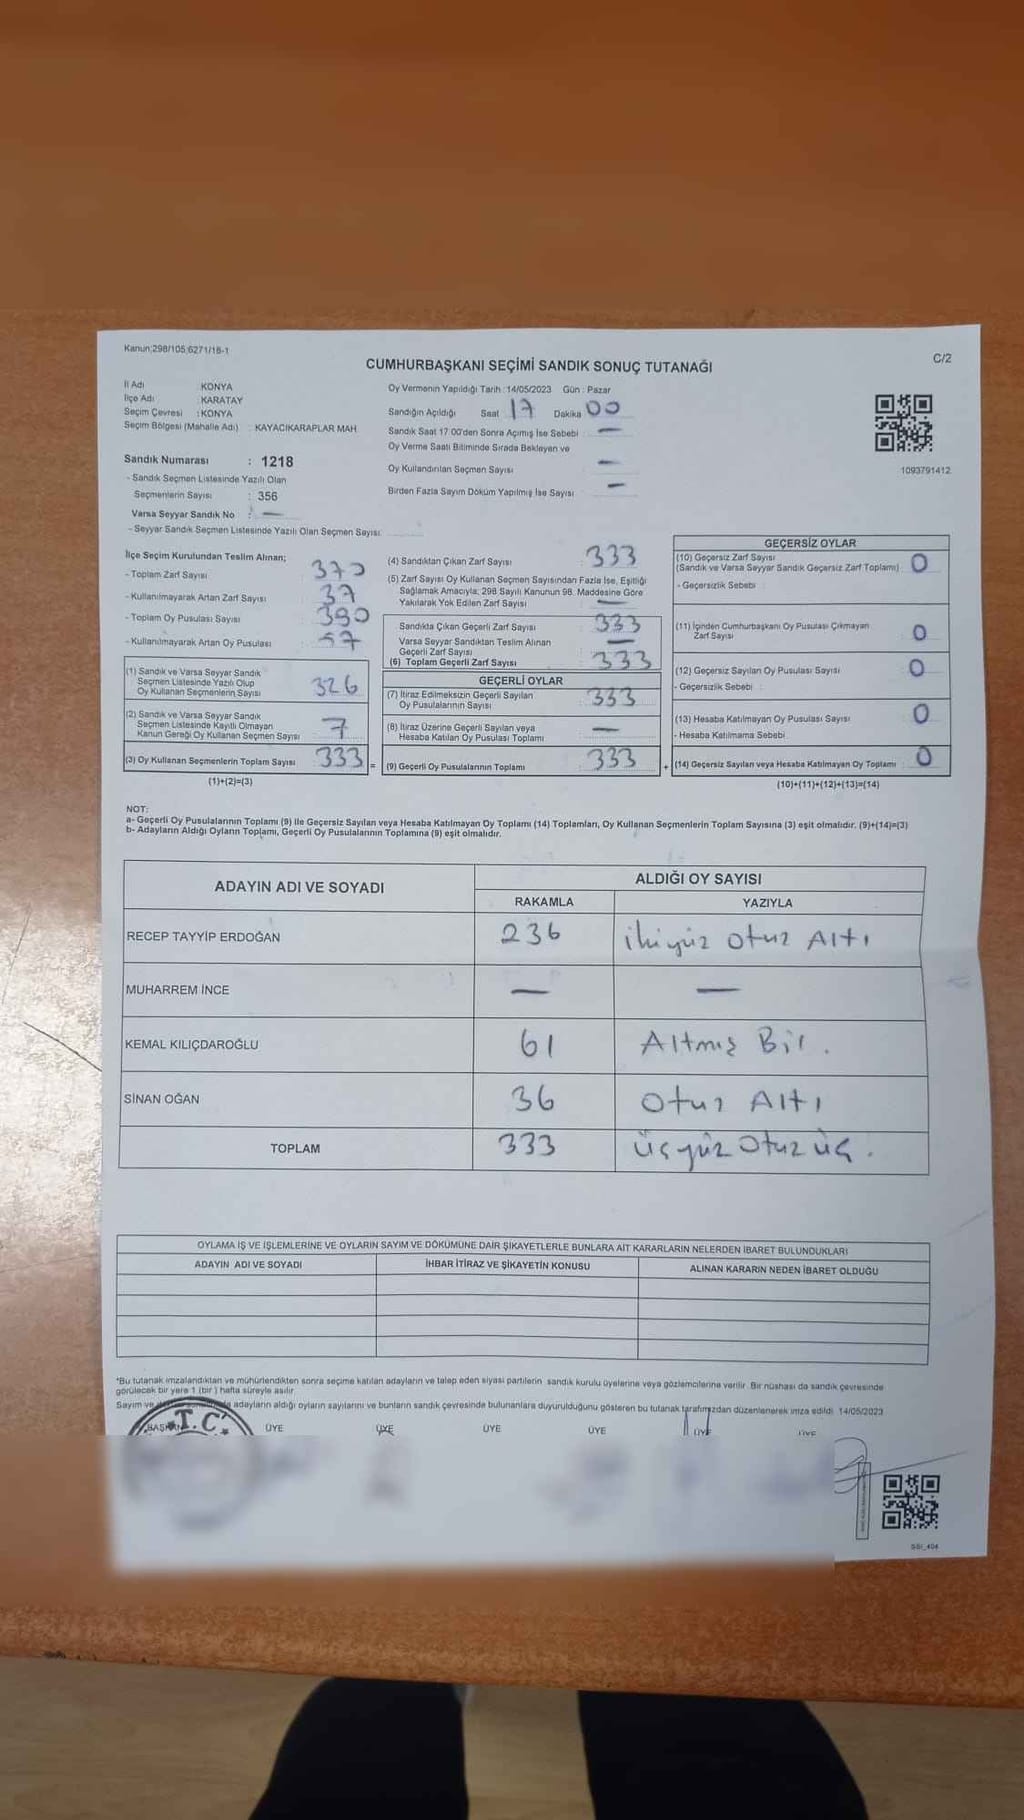 Kanun:298/105;6271/16-1
C/2
CUMHURBAŞKANI SEÇİMİ SANDIK SONUÇ TUTANAĞI
İl Adı : KONYA
İlçe Adı : KARATAY
Seçim Çevresi : KONYA
Seçim Bölgesi (Mahalle Adı) : KAYACIKARAPLAR MAH.
Sandık Numarası : 1218
- Sandık Seçmen Listesinde Yazılı Olan
Seçmenlerin Sayısı : 356
Varsa Seyyar Sandık No : —
- Seyyar Sandık Seçmen Listesinde Yazılı Olan Seçmen Sayısı:
Oy Vermenin Yapıldığı Tarih : 14/05/2023 Gün : Pazar
Sandığın Açıldığı Saat 17 Dakika 00
Sandık Saat 17:00'den Sonra Açımış İse Sebebi : —
Oy Verme Saati Bitiminde Sırada Bekleyen ve
Oy Kullandırılan Seçmen Sayısı : —
Birden Fazla Sayım Döküm Yapılmış İse Sayısı : —
1093791412
İlçe Seçim Kurulundan Teslim Alınan;
- Toplam Zarf Sayısı : 370
- Kullanılmayarak Artan Zarf Sayısı : 37
- Toplam Oy Pusulası Sayısı : 390
- Kullanılmayarak Artan Oy Pusulası : 57
(1) Sandık ve Varsa Seyyar Sandık
Seçmen Listesinde Yazılı Olup
Oy Kullanan Seçmenlerin Sayısı : 326
(2) Sandık ve Varsa Seyyar Sandık
Seçmen Listesinde Kayıtlı Olmayan
Kanun Gereği Oy Kullanan Seçmen Sayısı : 7
(3) Oy Kullanan Seçmenlerin Toplam Sayısı : 333 =
(1)+(2)=(3)
(4) Sandıktan Çıkan Zarf Sayısı : 333
(5) Zarf Sayısı Oy Kullanan Seçmen Sayısından Fazla İse, Eşitliği
Sağlamak Amacıyla; 298 Sayılı Kanunun 98. Maddesine Göre
Yakılarak Yok Edilen Zarf Sayısı : —
Sandıkta Çıkan Geçerli Zarf Sayısı : 333
Varsa Seyyar Sandıktan Teslim Alınan
Geçerli Zarf Sayısı : —
(6) Toplam Geçerli Zarf Sayısı : 333
GEÇERLİ OYLAR
(7) İtiraz Edilmeksizin Geçerli Sayılan
Oy Pusulalarının Sayısı : 333
(8) İtiraz Üzerine Geçerli Sayılan veya
Hesaba Katılan Oy Pusulası Toplamı : —
(9) Geçerli Oy Pusulalarının Toplamı : 333 +
GEÇERSİZ OYLAR
(10) Geçersiz Zarf Sayısı
(Sandık ve Varsa Seyyar Sandık Geçersiz Zarf Toplamı) : 0
- Geçersizlik Sebebi :
(11) İçinden Cumhurbaşkanı Oy Pusulası Çıkmayan
Zarf Sayısı : 0
(12) Geçersiz Sayılan Oy Pusulası Sayısı : 0
- Geçersizlik Sebebi :
(13) Hesaba Katılmayan Oy Pusulası Sayısı : 0
- Hesaba Katılmama Sebebi :
(14) Geçersiz Sayılan veya Hesaba Katılmayan Oy Toplamı : 0
(10)+(11)+(12)+(13)=(14)
NOT:
a- Geçerli Oy Pusulalarının Toplamı (9) ile Geçersiz Sayılan veya Hesaba Katılmayan Oy Toplamı (14) Toplamları, Oy Kullanan Seçmenlerin Toplam Sayısına (3) eşit olmalıdır. (9)+(14)=(3)
b- Adayların Aldığı Oyların Toplamı, Geçerli Oy Pusulalarının Toplamına (9) eşit olmalıdır.
ADAYIN ADI VE SOYADI ALDIĞI OY SAYISI
RAKAMLA YAZIYLA
RECEP TAYYİP ERDOĞAN 236 ikiyüz otuz Altı
MUHARREM İNCE — —
KEMAL KILIÇDAROĞLU 61 Altmış Bir.
SİNAN OĞAN 36 otuz Altı
TOPLAM 333 üçyüz otuz üç.
OYLAMA İŞ VE İŞLEMLERİNE VE OYLARIN SAYIM VE DÖKÜMÜNE DAİR ŞİKAYETLERLE BUNLARA AİT KARARLARIN NELERDEN İBARET BULUNDUKLARI
ADAYIN ADI VE SOYADI İHBAR İTİRAZ VE ŞİKAYETİN KONUSU ALINAN KARARIN NEDEN İBARET OLDUĞU
*Bu tutanak imzalandıktan ve mühürlendikten sonra seçime katılan adayların ve talep eden siyasi partilerin sandık kurulu üyelerine veya gözlemcilerine verilir. Bir nüshası da sandık çevresinde
görülecek bir yere 1 (bir) hafta süreyle asılır.
Sayım ve adayların aldığı oyların sayılarını ve bunların sandık çevresinde bulunanlara duyurulduğunu gösteren bu tutanak tarafımızdan düzenlenerek imza edildi. 14/05/2023
BAŞKAN ÜYE ÜYE ÜYE ÜYE ÜYE ÜYE
T.C.